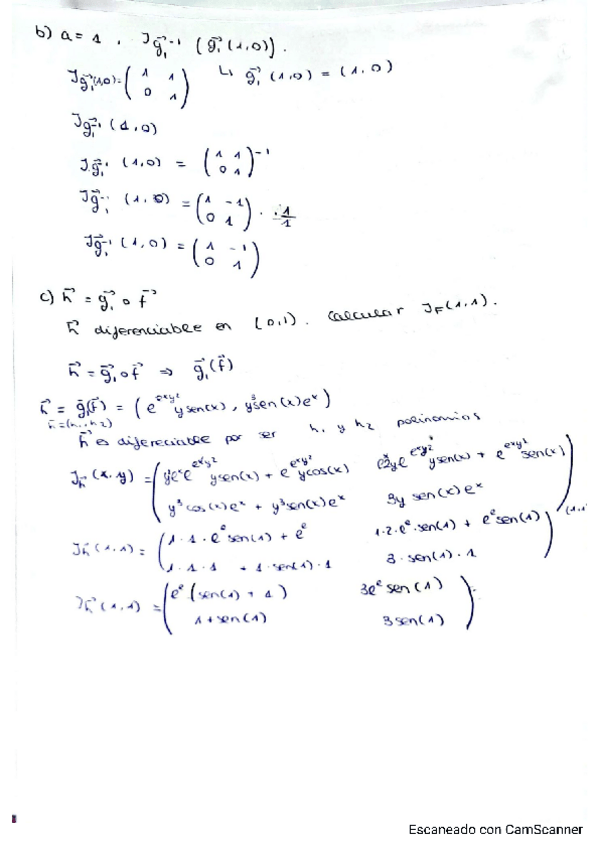 b) a = 1 , J g⃗₁⁻¹ (g⃗₁(1,0)).
J g⃗₁(1,0) = ( 1 1 ; 0 1 ) ↳ g⃗₁(1,0) = (1,0)
J g⃗₁⁻¹ (1,0)
J g⃗₁⁻¹ (1,0) = ( 1 1 ; 0 1 )⁻¹
J g⃗₁⁻¹ (1,0) = ( 1 -1 ; 0 1 ) · 1/1
J g⃗₁⁻¹ (1,0) = ( 1 -1 ; 0 1 )
c) h⃗ = g⃗₁ ∘ f⃗
h⃗ diferenciable en (0,1). Calcular J_F(1,1).
h⃗ = g⃗₁ ∘ f⃗ ⇒ g⃗₁(f⃗)
h⃗ = g⃗₁(f⃗) = (e^{e^x y²} y sen(x), y³ sen(x) e^x)
h⃗=(h₁,h₂)
h⃗ es difereciable por ser h₁ y h₂ polinomios
J h⃗ (x,y) =
y³cos(x)e^x + y³sen(x)e^x 3y sen(x) e^x
J h⃗ (1,1) = ( 1·1·e^e sen(1) + e^e 1·2·e^e·sen(1) + e^e sen(1)
1·1·1 + 1·sen(1)·1 3·sen(1)·1 )
J h⃗ (1,1) = ( e^e (sen(1) + 1) 3e^e sen(1)
1+sen(1) 3sen(1) )
Escaneado con CamScanner